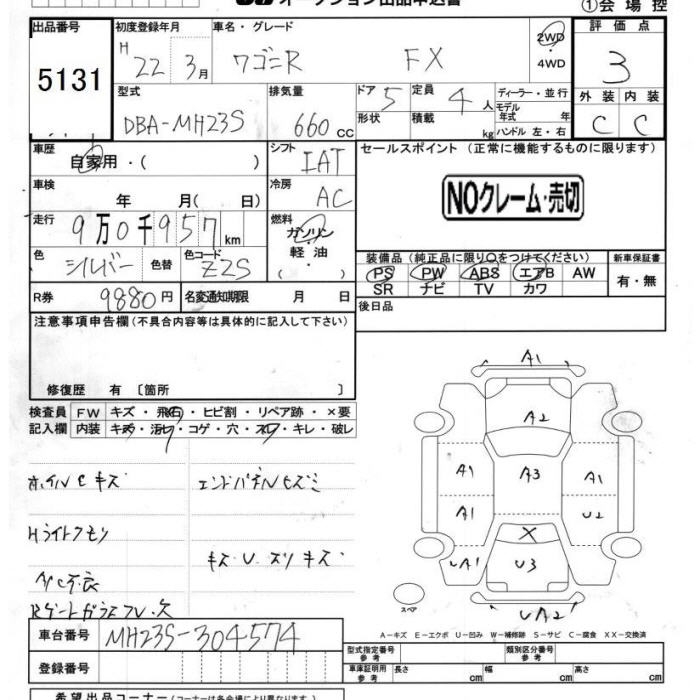 オークション出品申込書
①会場控
出品番号 初度登録年月 車名・グレード 評価点
5131 H 22 3月 ワゴンR FX 2WD・4WD 3
型式 排気量 ドア 5 定員 4 人 ディーラー・並行 外装 内装
DBA-MH23S 660 CC 形状 積載 kg モデル年式 年 ハンドル 左・右 C C
車歴 自家用・( ) シフト IAT セールスポイント (正常に機能するものに限ります)
車検 年 月( 日) 冷房 AC NOクレーム・売切
走行 9万0千957km 燃料 ガソリン・軽油・( )
色 シルバー 色替 色コード Z2S 装備品 (純正品に限り○をつけてください) 新車保証書
PS PW ABS エアB AW 有・無
SR ナビ TV カワ
R券 9880円 名変通知期限 月 日 後日品
注意事項申告欄 (不具合内容等は具体的に記入して下さい)
修復歴 有 〔箇所 〕
検査員 FW キズ・飛石・ヒビ割・リペア跡・×要
記入欄 内装 キズ・汚レ・コゲ・穴・スレ・キレ・破レ
ホイルCキズ エンドパネルヒズミ
Hライトクモリ
キズ・U・スリキズ
A/C不良
Rゲートガラス
A1
A2
A1 A3 A1
A1 U2
UA1 X U3
UA2
スペア
A-キズ E-エクボ U-凹み W-補修跡 S-サビ C-腐食 XX-交換済
車台番号 MH23S-304574
型式指定番号 参考 類別区分番号 参考
登録番号 車庫証明用 参考 長さ cm 幅 cm 高さ cm
希望出品コーナー (コーナーは各会場により異なります)